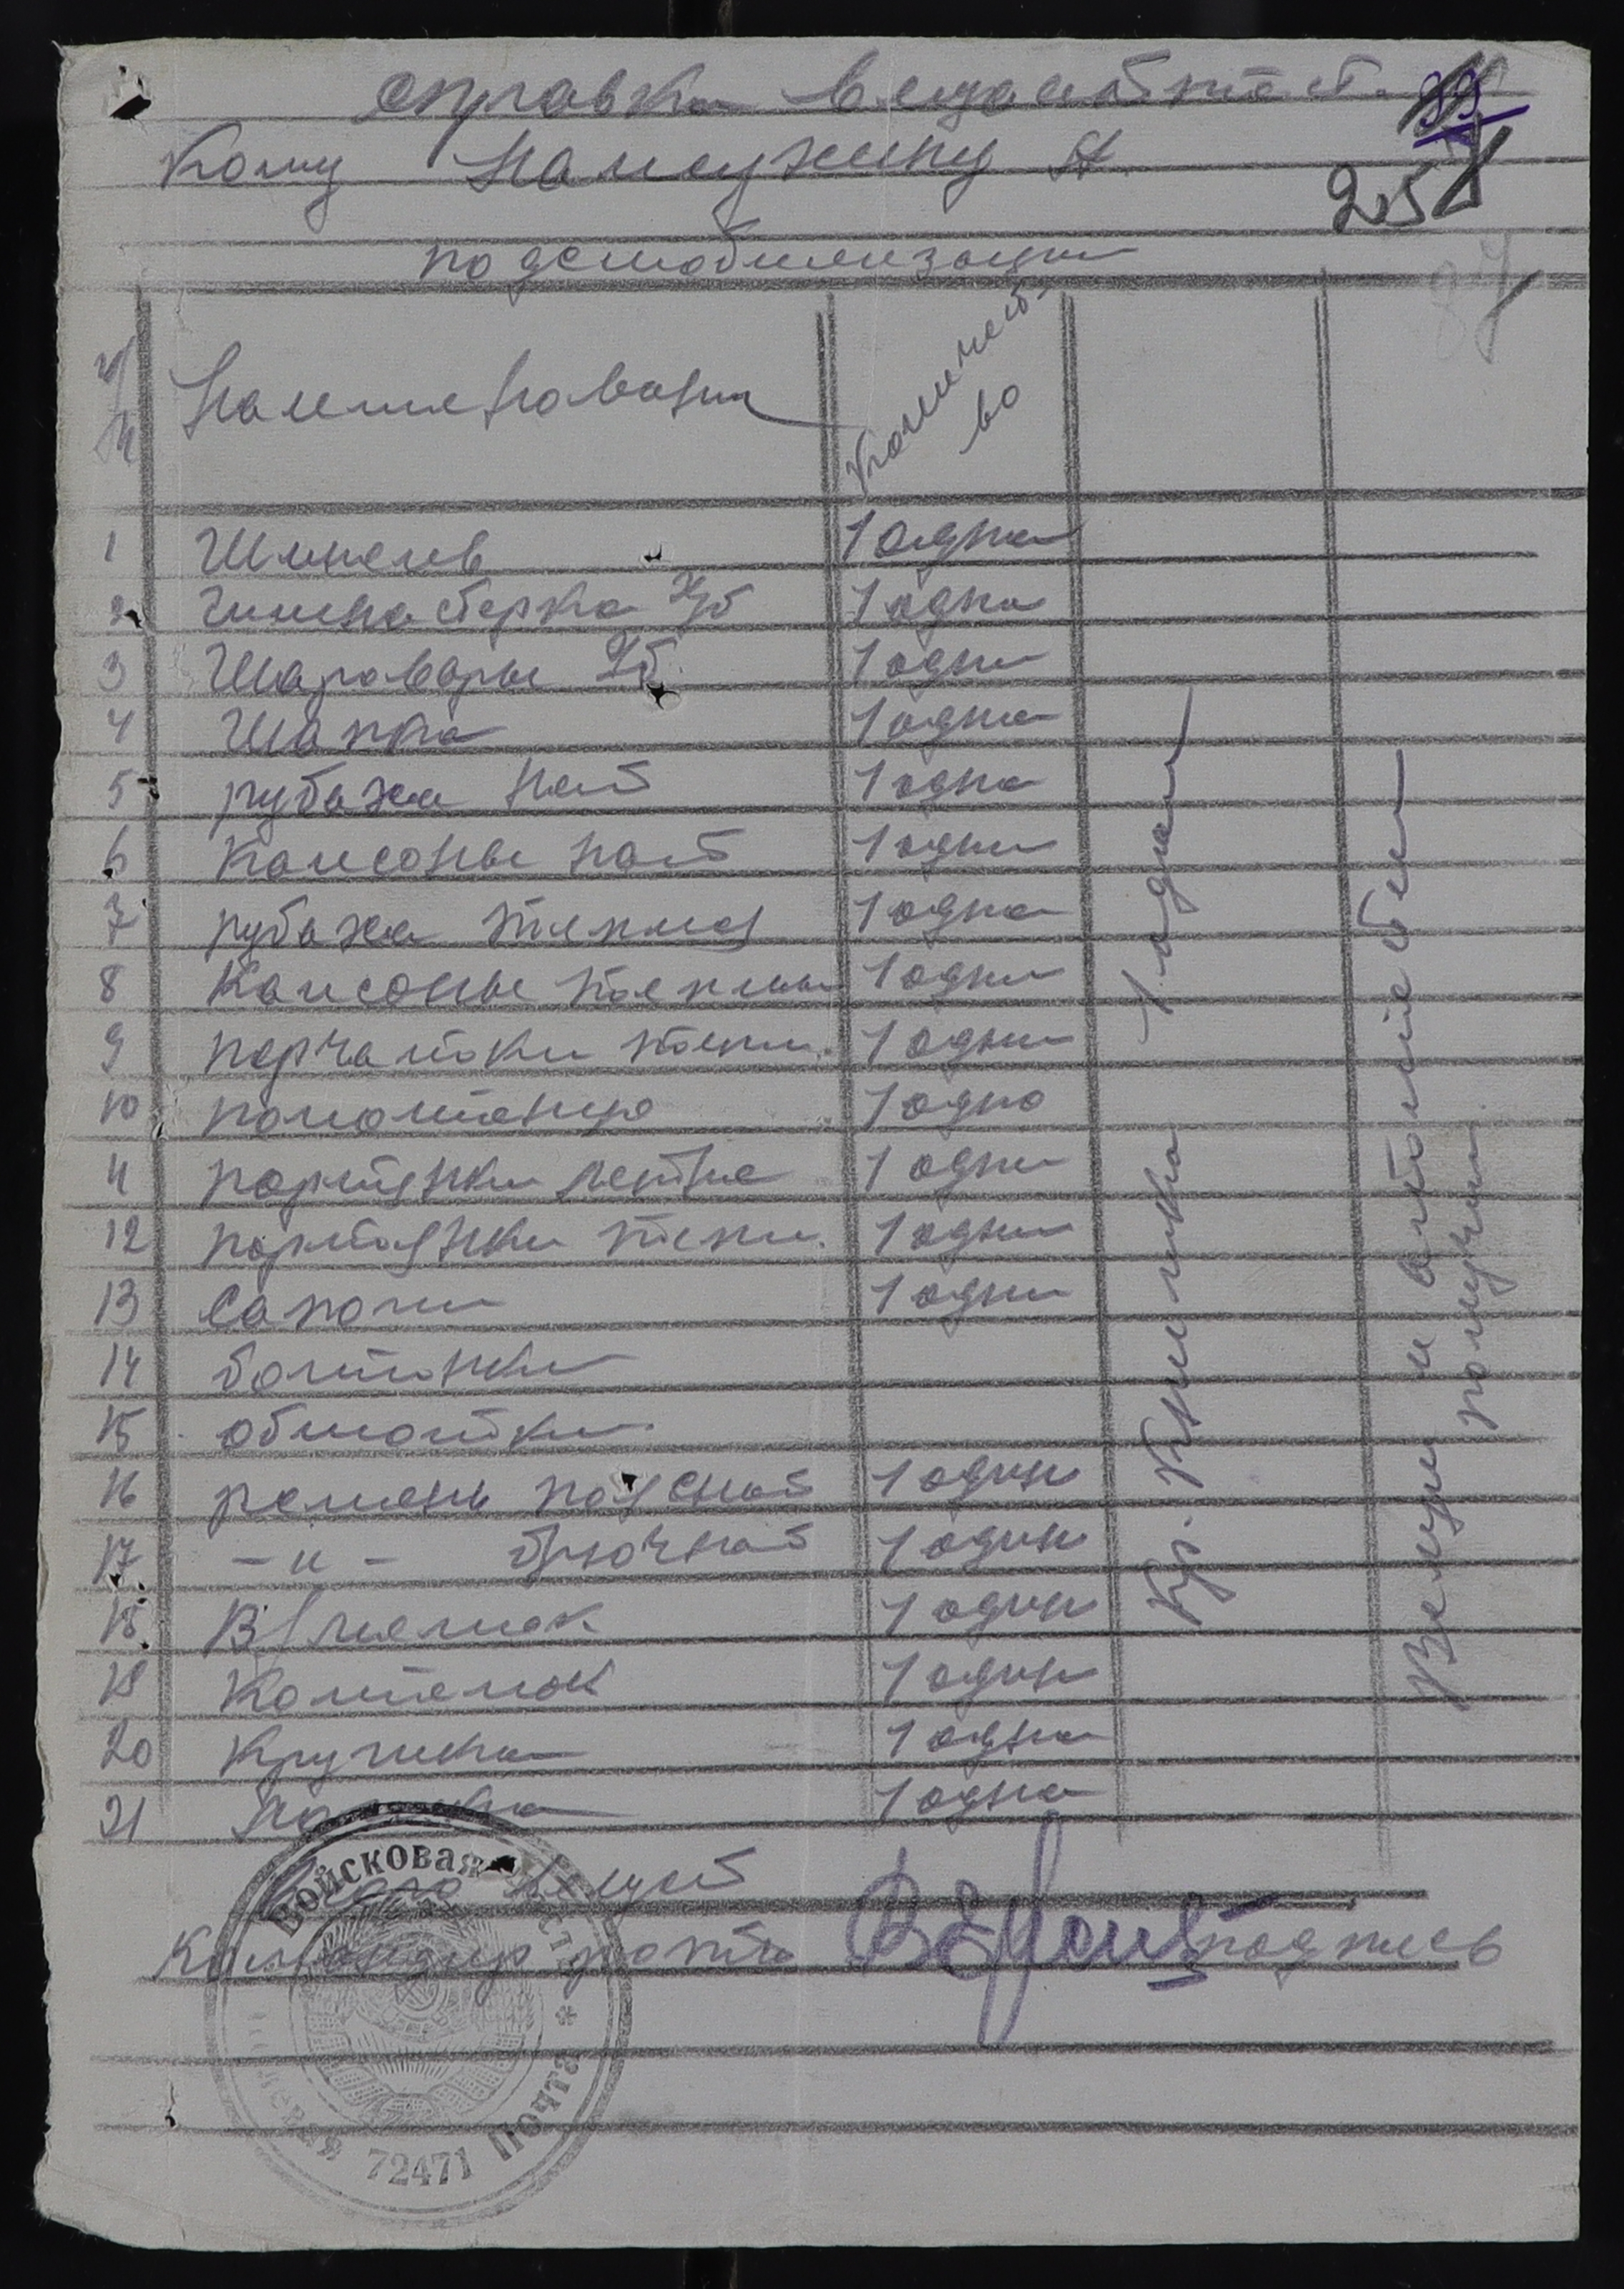 справка вещаттест.
Кому Намуженну А.
по демобилизации
257
N/N Наименования Количест-во
1 Шинель 1 одна
2 Гимнастерка х/б 1 одна
3 Шаровары х/б 1 одни
4 Шапка 1 одна
5 рубаха нат 1 одна
6 Кальсоны нат 1 одни
7 рубаха теплая 1 одна
8 Кальсоны теплые 1 одни
9 перчатки тепл. 1 одни
10 полотенце 1 одно
11 портянки летние 1 одни
12 портянки тепл. 1 одни
13 Сапоги 1 одни
14 ботинки
15 обмотки
16 ремень поясной 1 один
17 -"- брючной 1 один
18 В/мешок 1 один
19 Котелок 1 один
20 Кружка 1 одна
21 1 одна
Кр. Книжка 1 одна
Вещи и аттестат
получил
вещей
Командир роты подпись
Войсковая часть
Полевая Почта
72471